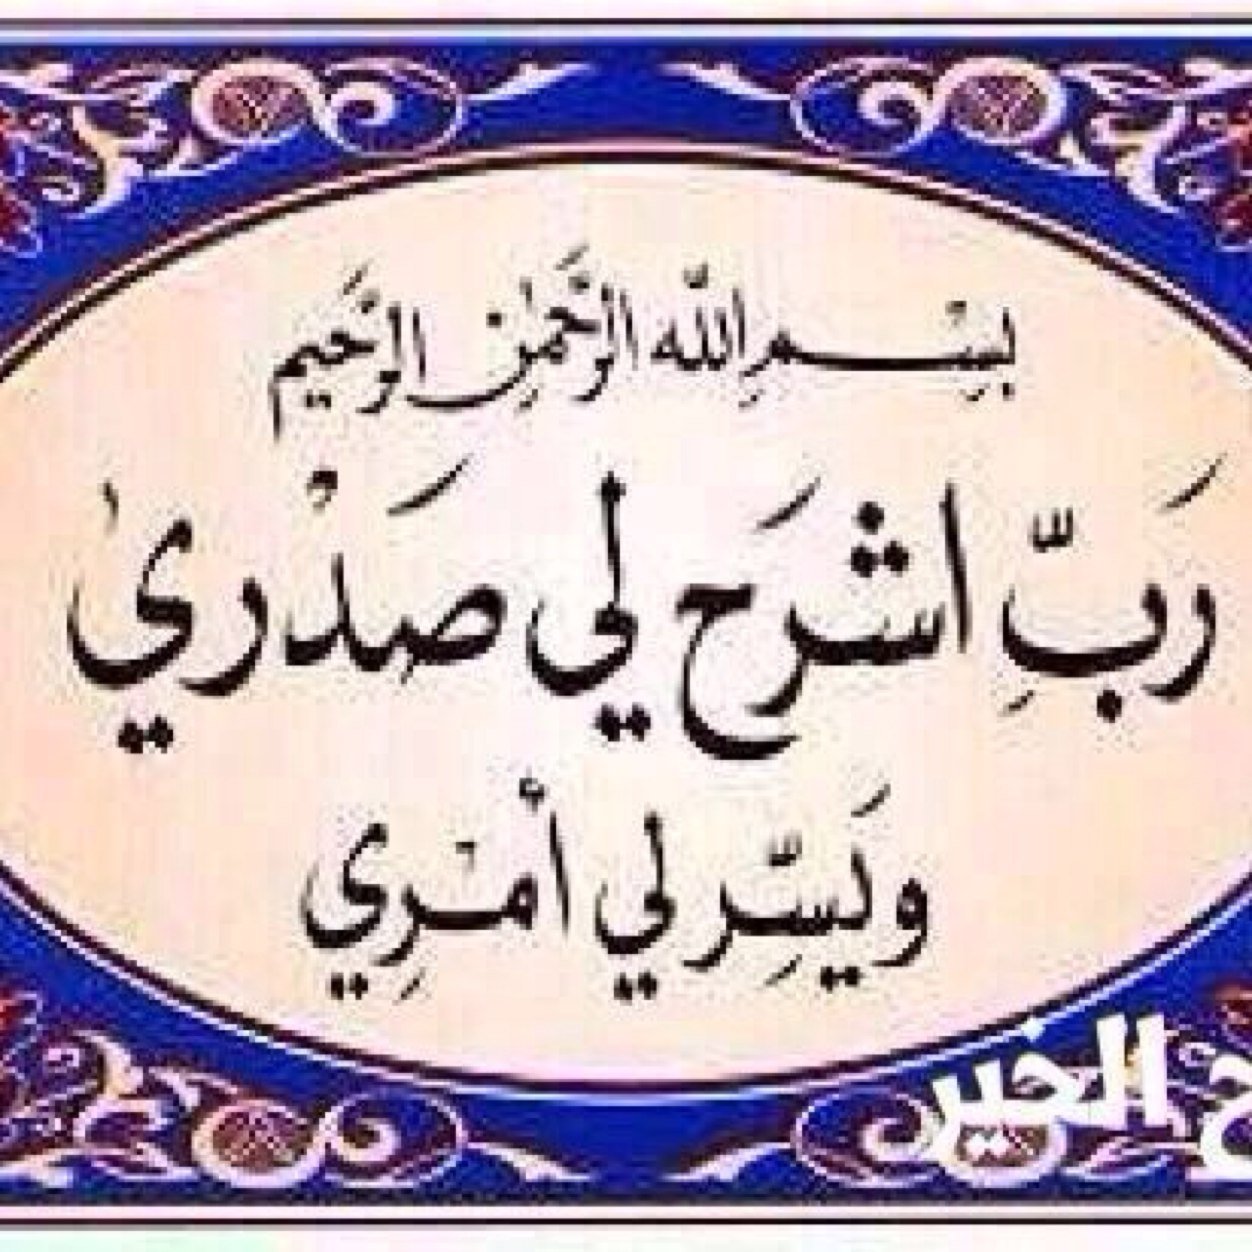 بِسْمِ اللّه الرَّحْمٰنِ الرَّحَيم
رَبِّ اشْرَح لي صَدْري
ويَسِّر لي أمْرِي
ح الخير